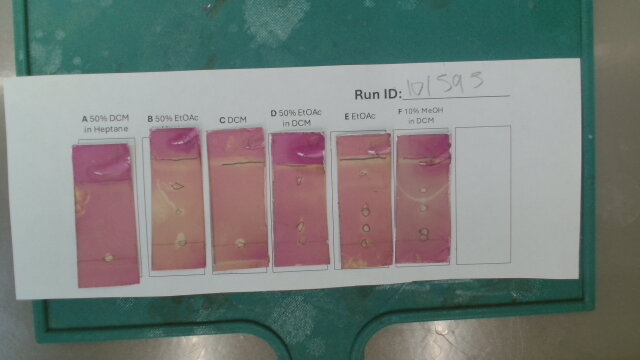 Run ID: 101595
A 50% DCM
in Heptane
B 50% EtOAc
C DCM
D 50% EtOAc
in DCM
E EtOAc
F 10% MeOH
in DCM